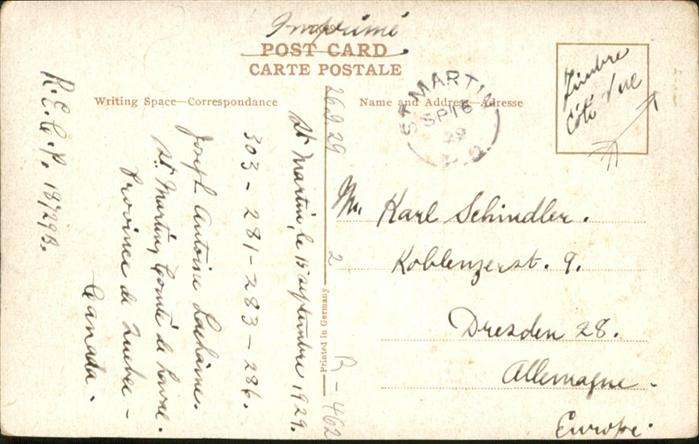 Imprimé.
POST CARD
CARTE POSTALE
Writing Space—Correspondence
Name and Address—Adresse
ST MARTIN
SP 16
29
Timbre
Côté Vue
R.E.C.P. 18729B.
St Martin, le 15 septembre 1929.
303 - 281 - 283 - 286.
Joseph Antoine
St. Martin, Comté de Laval.
Province de Quebec -
Canada.
26.9.29
2
Printed in Germany
R - 462
M. Karl Schindler.
Koblenzerst. 9.
Dresden 28.
Allemagne.
Europe.